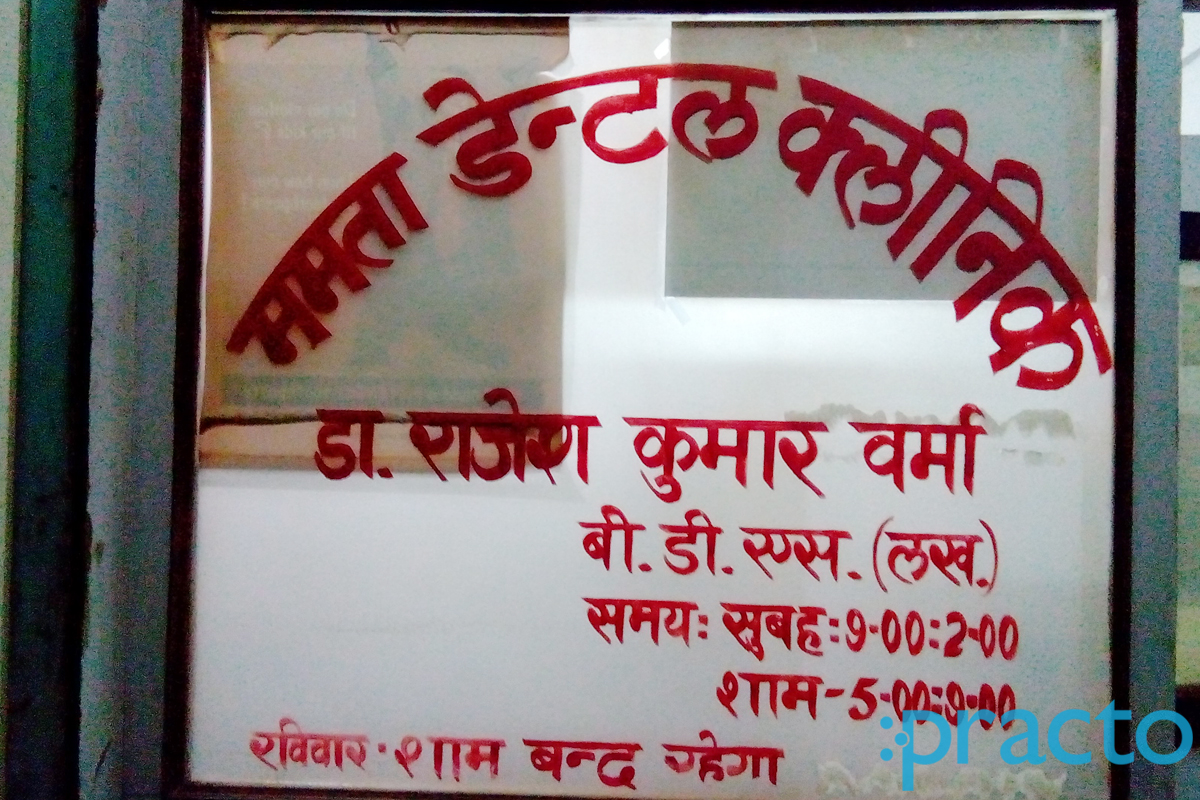 ममता डेन्टल क्लीनिक
डा. राजेश कुमार वर्मा
बी. डी. एस. (लख.)
समय: सुबह: 9-00:2-00
शाम - 5-00:9-00
रविवार · शाम बन्द रहेगा
:practo